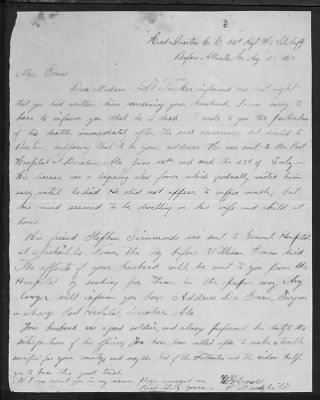 Head Quarters Co. C.
Before Atlanta, Ga Aug
Mrs Evans
Dear Madam - Lt Tucker informed me last night
that you had written him concerning your husband. I am sorry to
have to inform you that he is dead. I wrote to you the particulars
of his death immediately after the sad occurrence, but directed to
Berlin, supposing that to be your address. He was sent to the Post
Hospital at Decatur, Ala June and died the 22d of July -
His disease was a lingering slow fever which gradually wasted him
away until he died. He did not appear to suffer much; but
his mind seemed to be dwelling on his wife and child at
home.
His friend Stephen Simmonds was sent to General Hospital
at Nashville, Tenn, the day before William Evans died
The effects of your husband will be sent to you from the
Hospital by sending for them in the proper way. Any
Lawyer will inform you how. Address Surgeon
in charge Post Hospital, Decatur Ala
Your husband was a good soldier, and always performed his duty to the
satisfaction of his officers. You have been called upon to make a terrible
sacrifice for your country, and may the God of the Fatherless and the widow help
you to bear this great trial.
If I can assist you in any manner Please command me
Respectfully yours